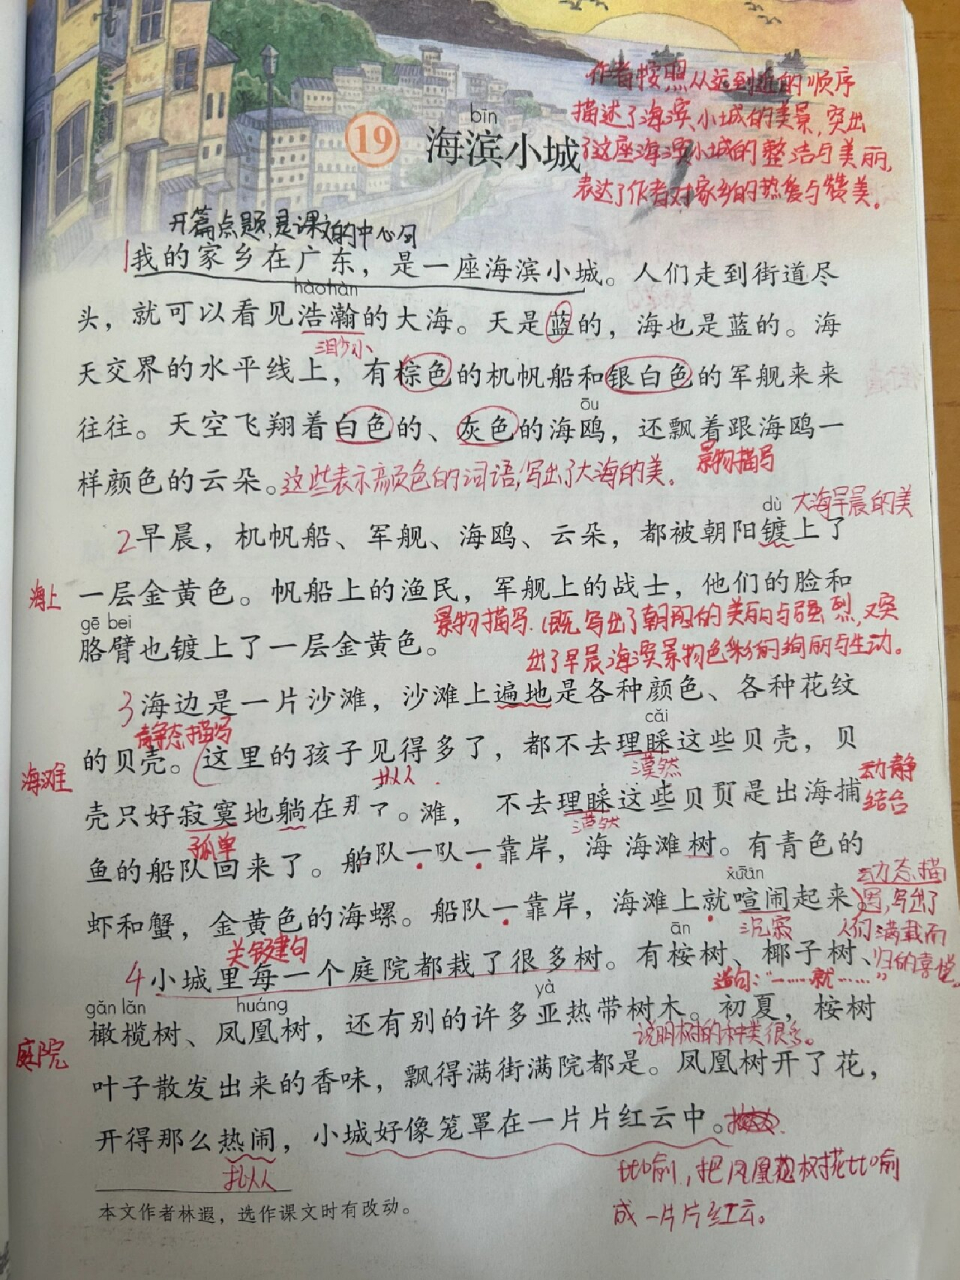 作者按照从远到近的顺序
描述了海滨小城的美景,突出
了这座海滨小城的整洁与美丽,
表达了作者对家乡的热爱与赞美。
bīn
19 海滨小城
开篇点题,是课文的中心句
1我的家乡在广东，是一座海滨小城。人们走到街道尽
hàohàn
头，就可以看见浩瀚的大海。天是蓝的，海也是蓝的。海
天交界的水平线上，有棕色的机帆船和银白色的军舰来来
ōu
往往。天空飞翔着白色的、灰色的海鸥，还飘着跟海鸥一
景物描写
样颜色的云朵。这些表示颜色的词语,写出了大海的美.
dù 大海早晨的美
2早晨，机帆船、军舰、海鸥、云朵，都被朝阳镀上了
海上
一层金黄色。帆船上的渔民，军舰上的战士，他们的脸和
gē bei
景物描写.既写出了朝阳的美丽与强烈,又突
胳臂也镀上了一层金黄色。
出了早晨海滨景物色彩的绚丽与生动。
3海边是一片沙滩，沙滩上遍地是各种颜色、各种花纹
静态描写
cǎi
的贝壳。这里的孩子见得多了，都不去理睬这些贝壳，贝
海滩
拟人
漠然
动静
结合
壳只好寂寞地躺在那了。滩，不去理睬这些贝贝是出海捕
孤单
漠然
鱼的船队回来了。船队一队一靠岸，海 海滩树。有青色的
xuān
动态描
虾和蟹，金黄色的海螺。船队一靠岸，海滩上就喧闹起来
写,写出了
沉寂
人们满载而
归的喜悦。
关键句
ān
4小城里每一个庭院都栽了很多树。有桉树、椰子树、
造句:“一……就……”
gǎn lǎn huáng yà
橄榄树、凤凰树，还有别的许多亚热带树木。初夏，桉树
庭院
说明树的种类很多。
叶子散发出来的香味，飘得满街满院都是。凤凰树开了花，
开得那么热闹，小城好像笼罩在一片片红云中。
拟人
比喻,把凤凰树花比喻
成一片片红云。
本文作者林遐，选作课文时有改动。